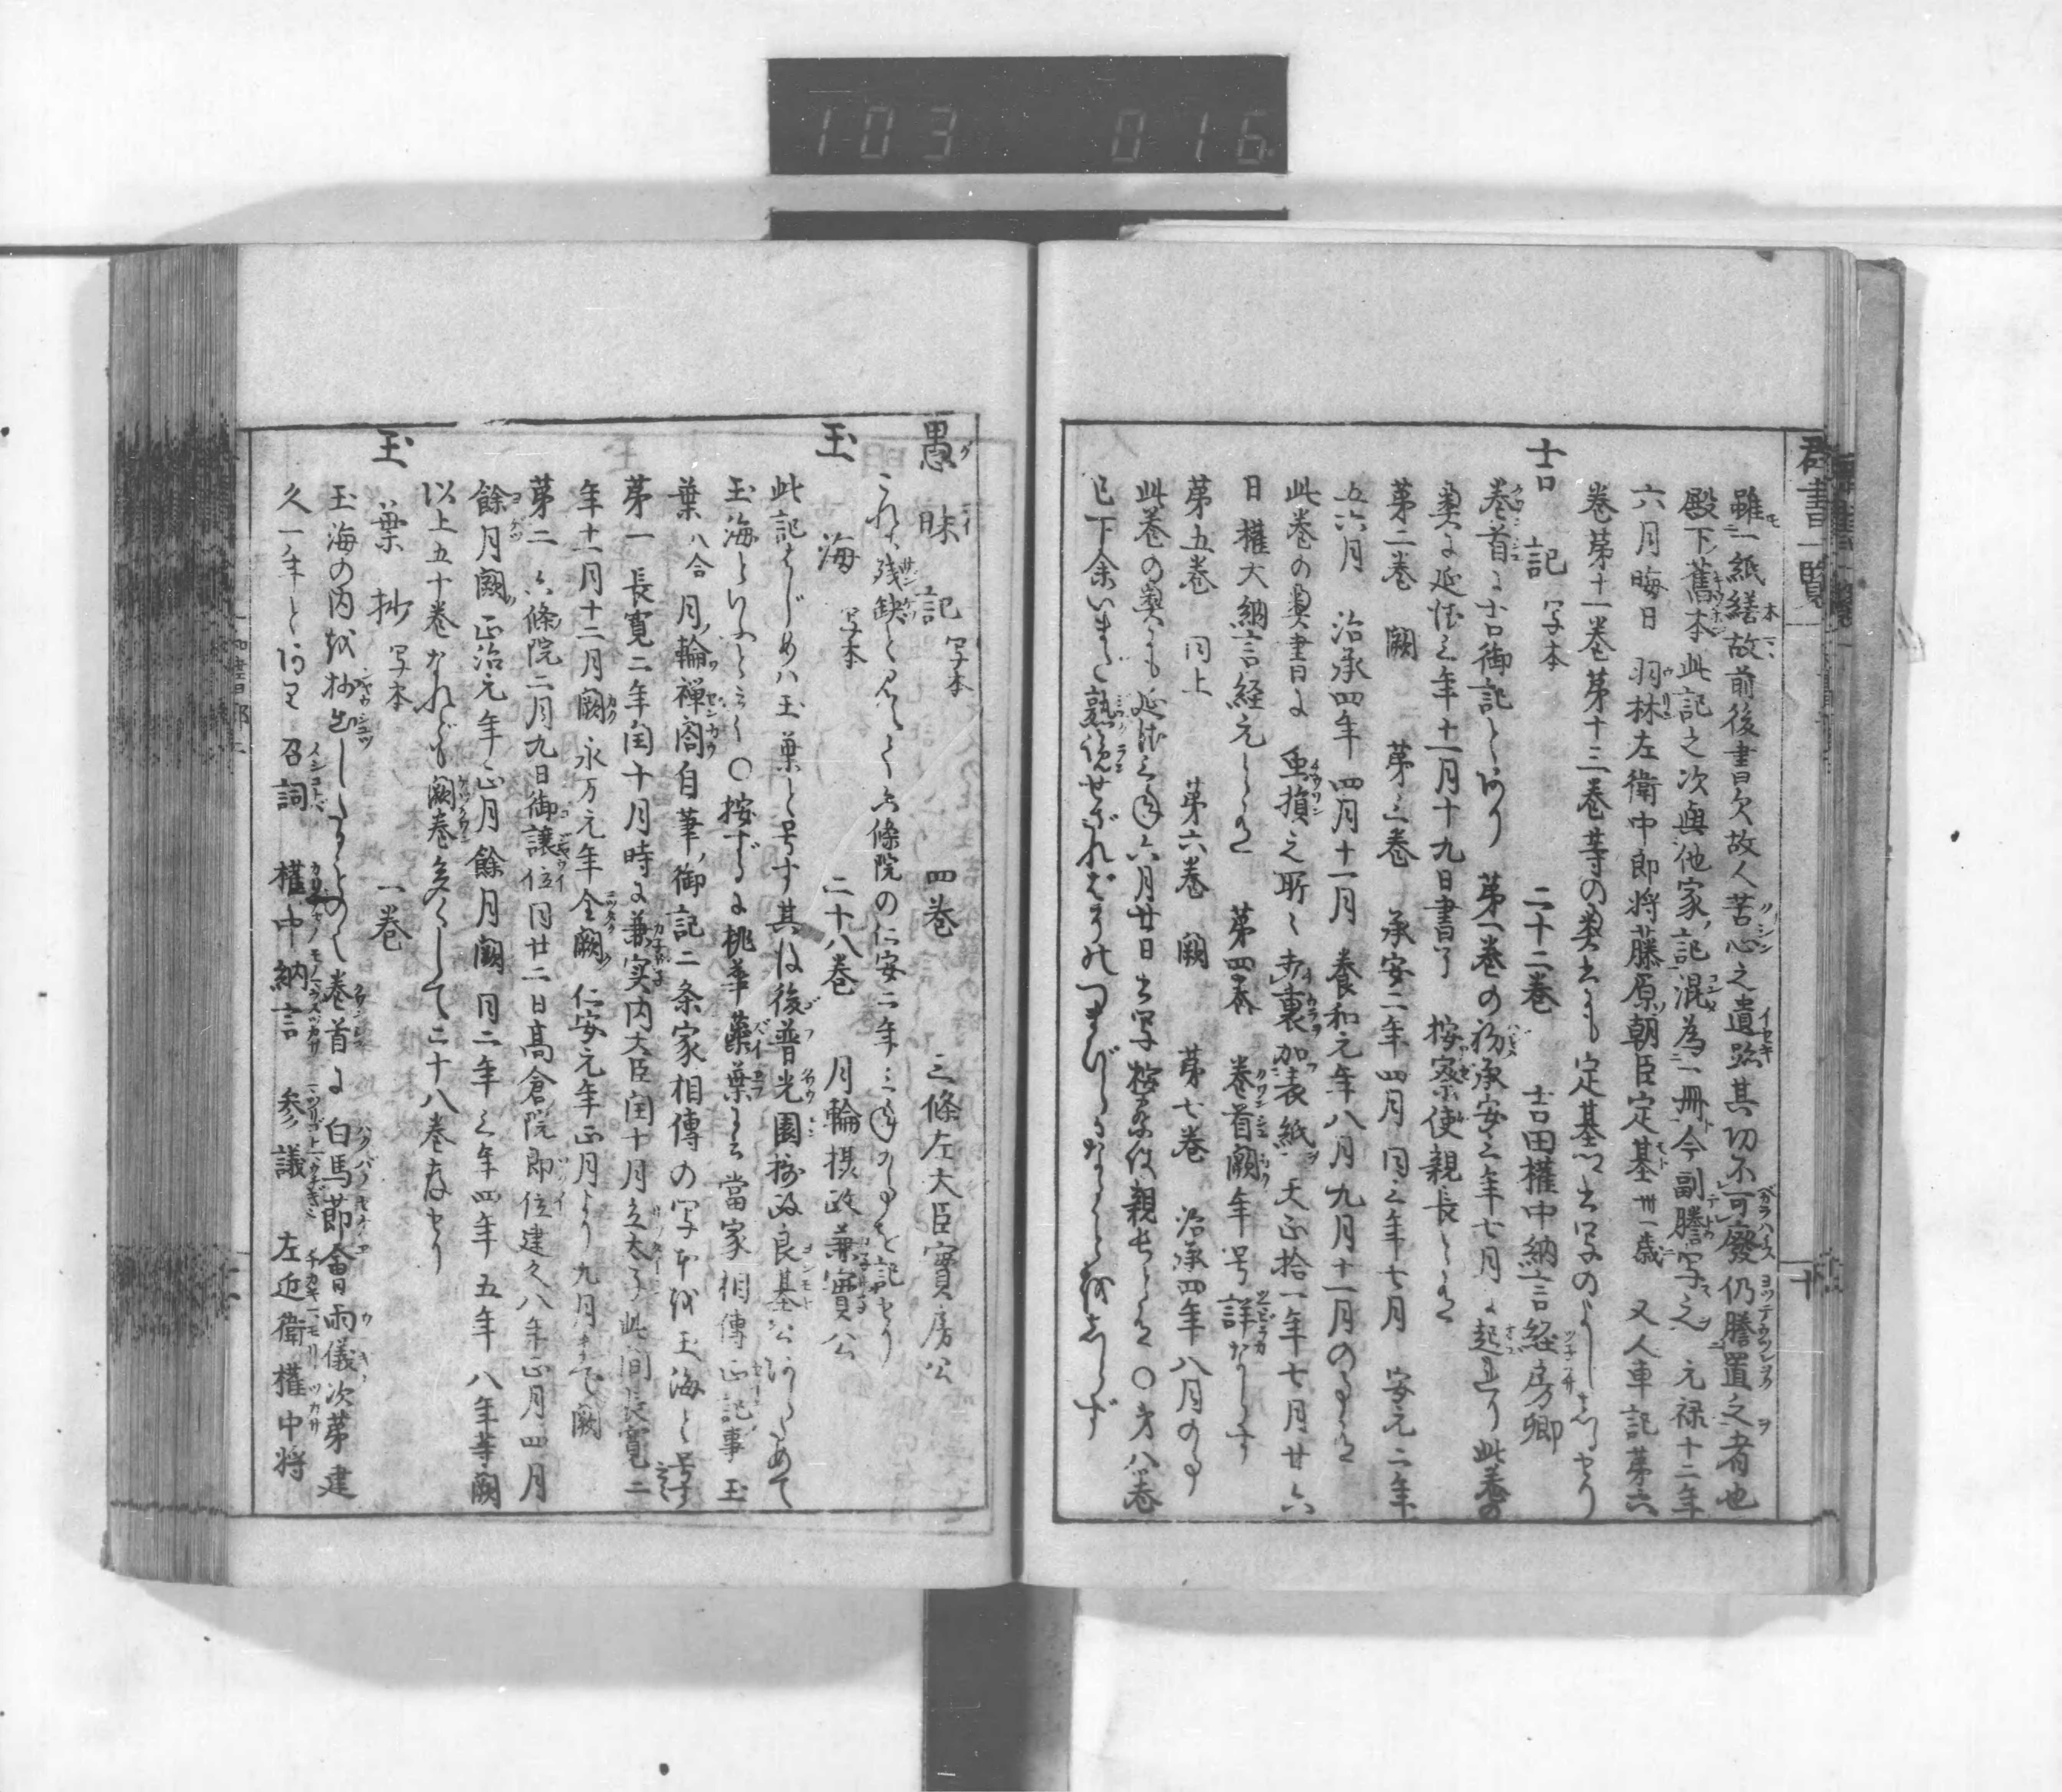 103 016
群書一覧
雖一紙繕故前後書欠故人苦心之遺跡其功不可廢仍謄置之者也
殿下舊本此記之次與他家記混為一冊今副謄写之 元禄十二年
六月晦日 羽林左衛中郎将藤原朝臣定基卅一歳 又人車記第六
巻第十一巻第十三巻等の奥にも定基公書写のよし
吉記 写本 二十二巻 吉田權中納言経房卿
巻首に吉御記とあり 第一巻の初承安三年七月に起 此巻の
奥に延徳三年十一月十九日書了 按察使親長とあり
第二巻 闕 第三巻 承安二年四月 同三年七月 安元二年
五六月 治承四年四月十一月 養和元年八月九月十一月の事あり
此巻の奥書に 虫損之所々 裏加表紙 天正拾一年七月廿六
日 權大納言経元とあり 第四巻 巻首闕年号詳ならず
第五巻 同上 第六巻 闕 第七巻 治承四年八月の事
此巻の奥にも延徳三年六月廿日書写按察使親長とあり ○第八巻
已下余いまだ熟覧せざれば
愚昧記 写本 四巻 三條左大臣實房公
これは残缺と見えて六條院の仁安二年三年の事を記せり
玉海 写本 二十八巻 月輪摂政兼實公
此記はじめハ玉葉と号す其後後普光園摂政良基公あらためて
玉海と ○按ずるに桃華蘂葉に云當家相傳正記事 玉
葉 八合 月輪禅閤自筆御記二条家相傳の写本を玉海と号す
第一 長寛二年閏十月時に兼実内大臣閏十月 此間長寛二
年十一月十二月闕 永万元年全闕 仁安元年正月より九月まで闕
第二 六條院二月九日御譲位同廿二日高倉院即位建久八年正月四月
餘月闕 正治元年正月餘月闕 同二年三年四年 五年 八年等闕
以上五十巻なれども闕巻多くして二十八巻存せり
玉葉抄 写本 一巻
玉海の内を抄出したるもの也巻首に白馬節會雨儀次第建
久一年とあり 召詞 權中納言 参議 左近衛權中将